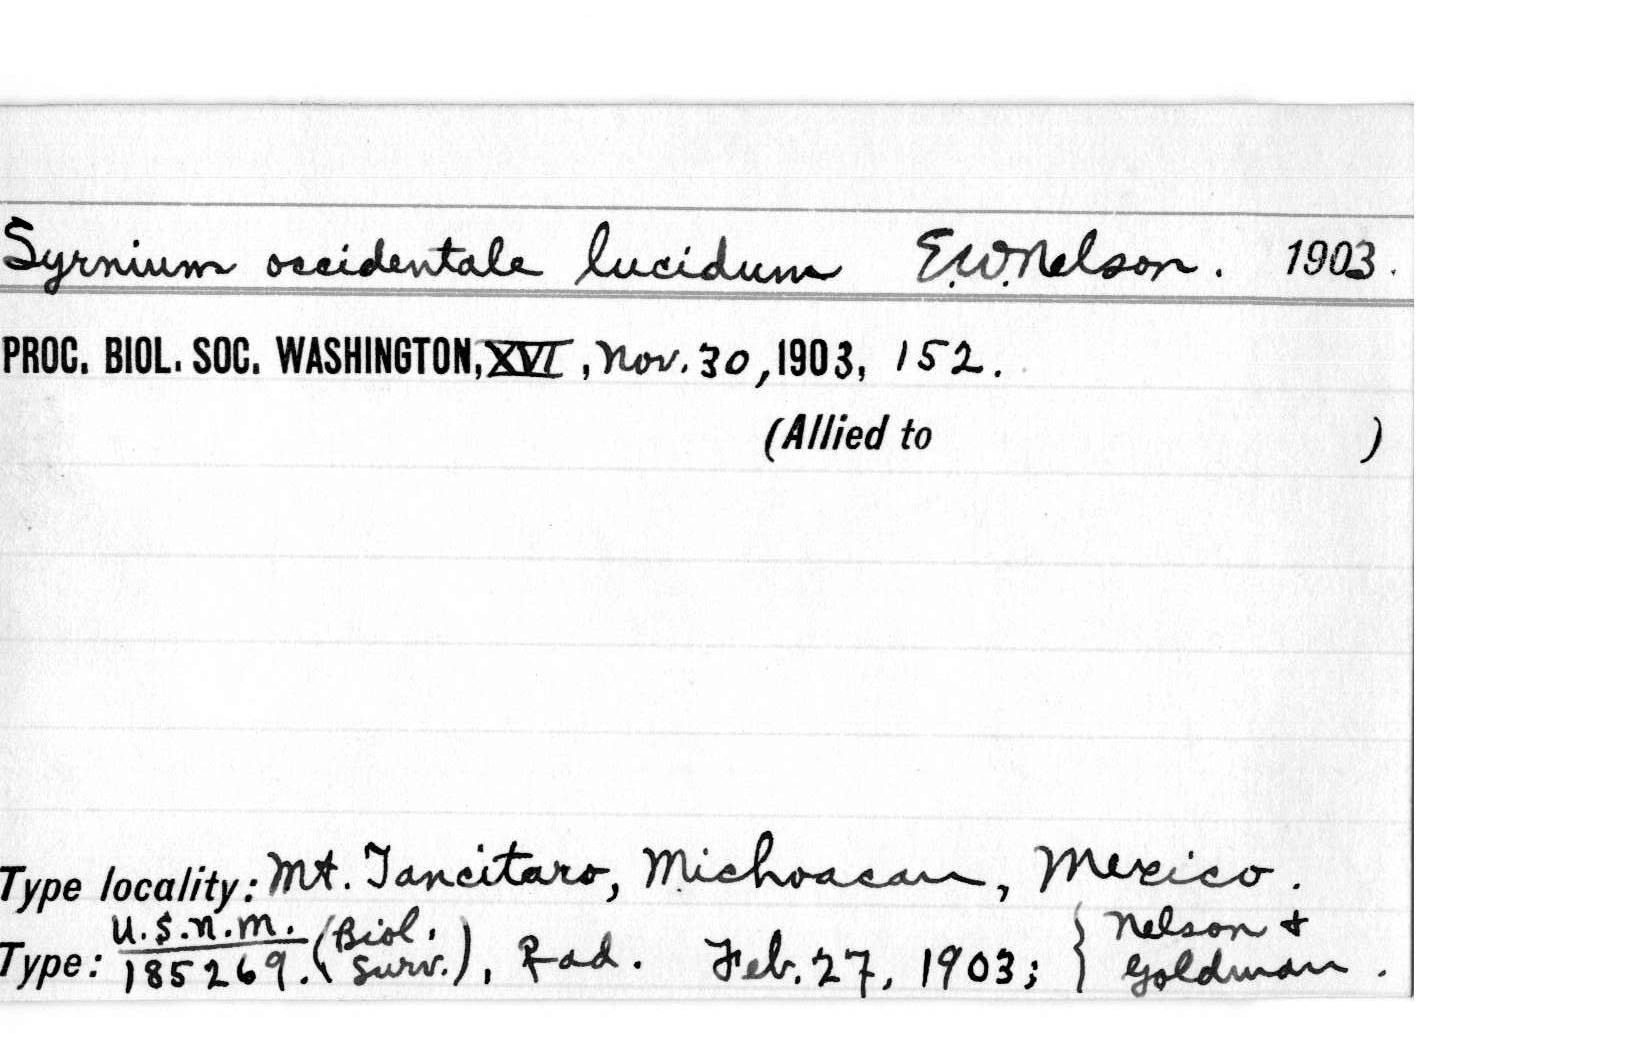 Syrnium occidentale lucidum E.W. Nelson. 1903.
PROC. BIOL. SOC. WASHINGTON, XVI, Nov. 30, 1903, 152.
(Allied to )
Type locality: Mt. Tancitaro, Michoacan, Mexico.
U.S.N.M. (Biol. Nelson &
Type: 185269. Surv.), ad. Feb. 27, 1903; Goldman.